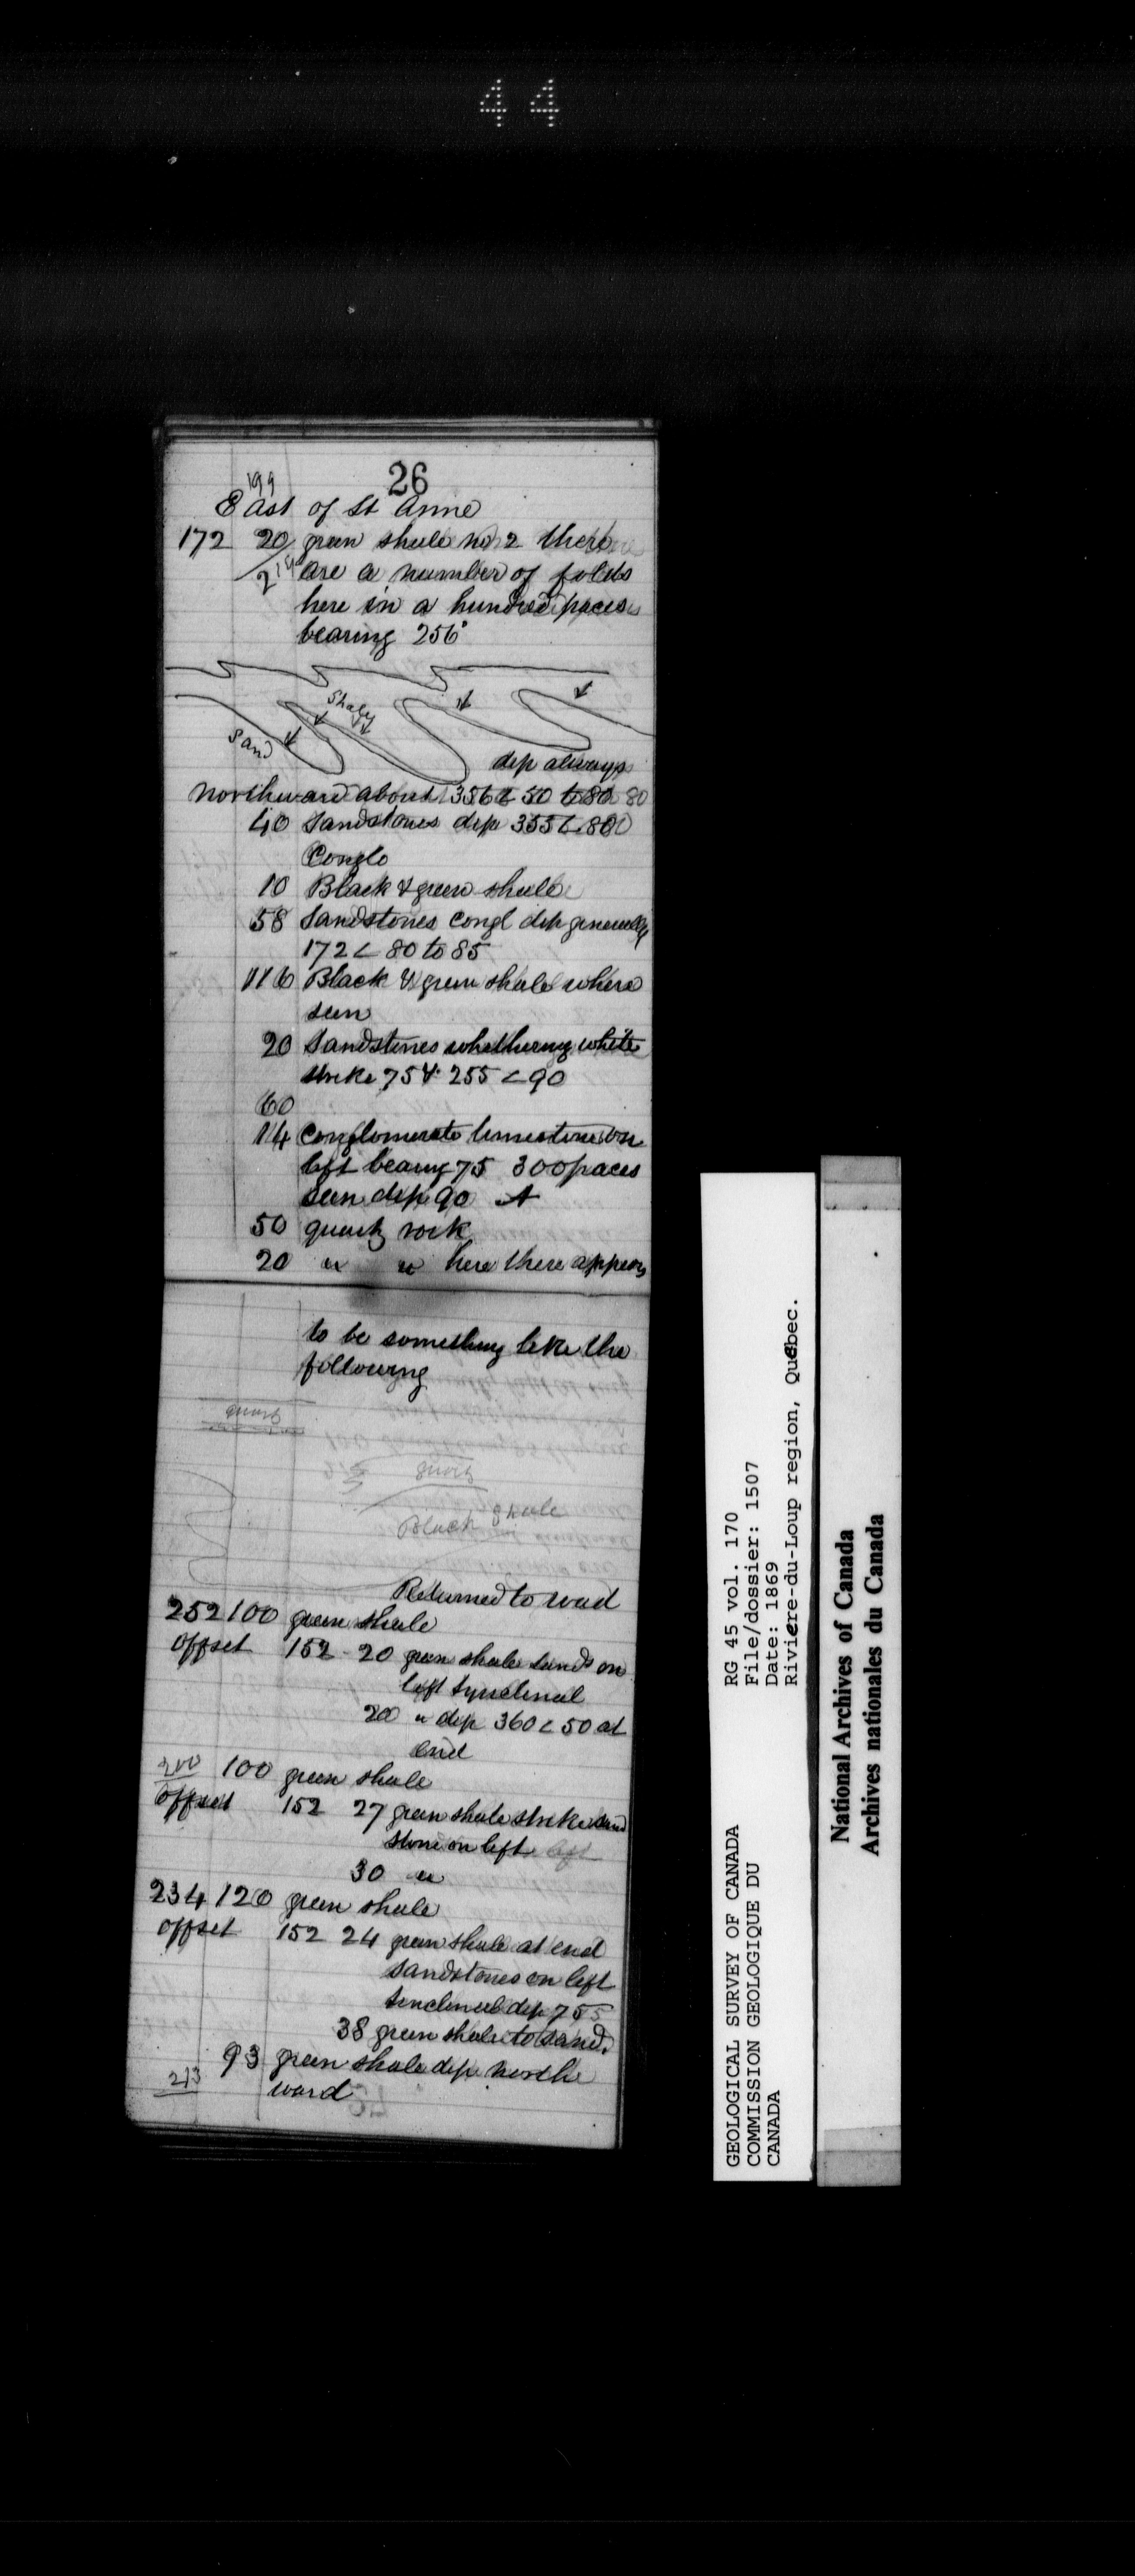 44
26
199
East of St Anne
172 20 green shale no 2 there
219 are a number of folds
here in a hundred paces
bearing 256°
Shaly
Sand
dip always
northward about 356 < 50 to 80 80
40 Sandstones dip 355 < 80
Conglo
10 Black & green shale
58 Sandstones congl dip generally
172 < 80 to 85
116 Black & green shale where
seen
20 Sandstones whethering white
strike 75 & 255 < 90
60
14 Conglomerate limestone on
left bearing 75 300 paces
seen dip 90 A
50 quartz rock
20 " " here there appears
to be something like the
following
quartz
quartz
Black Shale
Returned to road
252 100 green shale
offset 152 - 20 green shale sands on
left synclinal
20 " dip 360 < 50 at
end
200 100 green shale
offset 152 27 green shale strike sand
stone on left left
30 "
234 120 green shale
offset 152 24 green shale at end
Sandstones on left
sinclinal dip 75
38 green shale to sand.
93 green shale dip north
213 ward
GEOLOGICAL SURVEY OF CANADA
COMMISSION GEOLOGIQUE DU
CANADA
RG 45 vol. 170
File/dossier: 1507
Date: 1869
Riviere-du-Loup region, Québec.
National Archives of Canada
Archives nationales du Canada